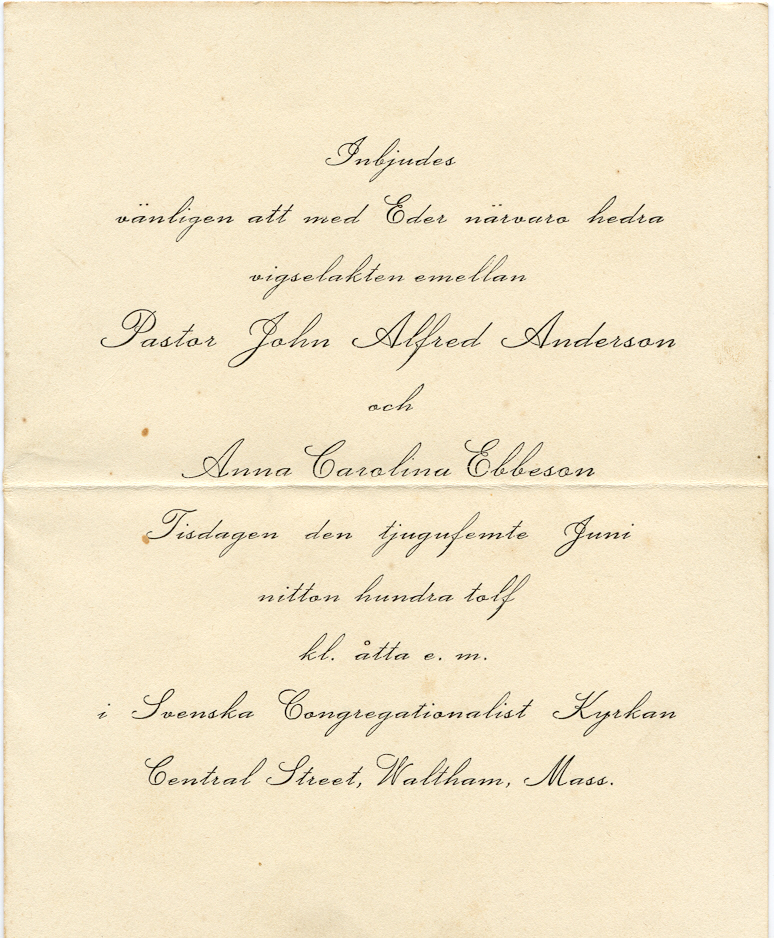 Inbjudes
vänligen att med Eder närvaro hedra
vigselakten emellan
Pastor John Alfred Anderson
och
Anna Carolina Ebbeson
Tisdagen den tjugufemte Juni
nitton hundra tolf
kl. åtta e. m.
i Svenska Congregationalist Kyrkan
Central Street, Waltham, Mass.